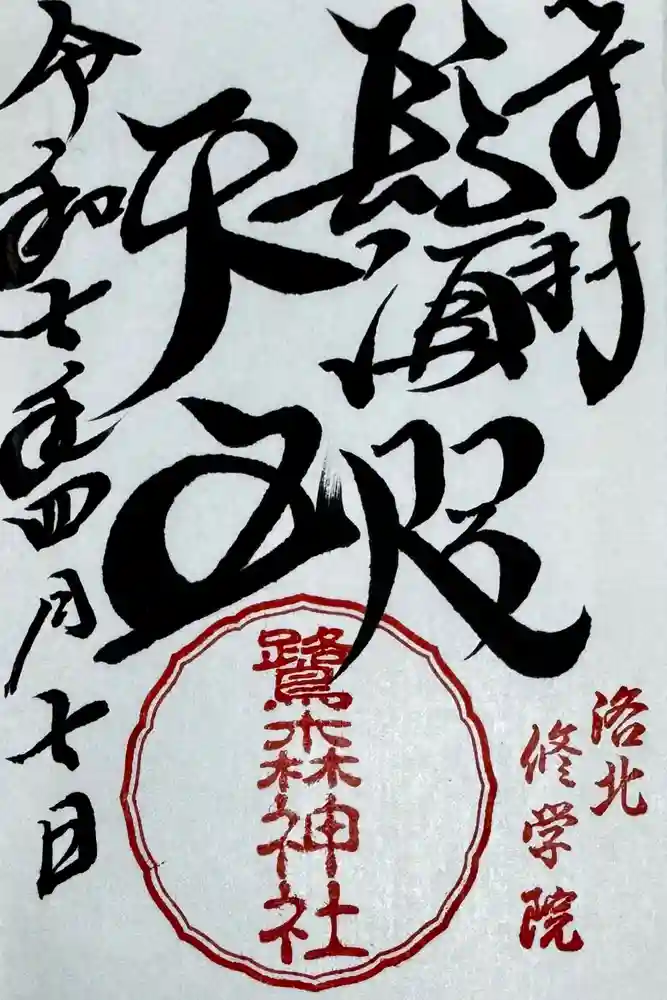 奉拝
洛北
修学院
鬚咫
天王
鷺森神社
令和七年四月七日